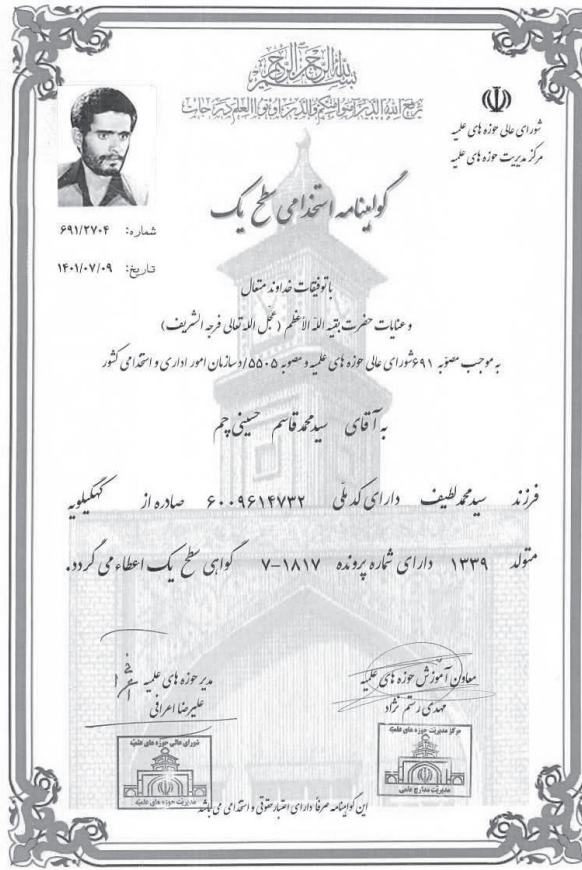 بسم الله الرحمن الرحیم
یرفع الله الذین آمنوا منکم والذین اوتوا العلم درجات
شورای عالی حوزه های علمیه
مرکز مدیریت حوزه های علمیه
گواهینامه استخدامی سطح یک
شماره: ۶۹۱/۲۷۰۴
تاریخ: ۱۴۰۱/۰۷/۰۹
با توفیقات خداوند متعال
و عنایات حضرت بقیه الله الأعظم (عجّل الله تعالی فرجه الشریف)
به موجب مصوبه ۶۹۱ شورای عالی حوزه های علمیه و مصوبه ۵۵۰۵/د سازمان امور اداری و استخدامی کشور
به آقای سیدمحمدقاسم حسینی چم
فرزند سیدمحمدلطیف دارای کد ملّی ۶۰۰۹۶۱۴۷۳۲ صادره از کهگیلویه
متولد ۱۳۳۹ دارای شماره پرونده ۷-۱۸۱۷ گواهی سطح یک اعطاء می گردد.
معاون آموزش حوزه های علمیه
مهدی رستم نژاد
مدیر حوزه های علمیه
علیرضا اعرافی
مرکز مدیریت حوزه های علمیه
مدیریت مدارج علمی
شورای عالی حوزه های علمیه
مدیریت حوزه های علمیه
این گواهینامه صرفاً دارای اعتبار حقوقی و استخدامی می باشد